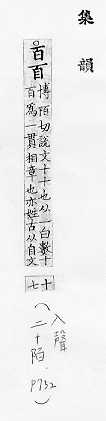 集韻
百百
博陌切說文十十也从一白數十十
百為一貫相章也亦姓古从自文七
(入聲
二十陌.
)